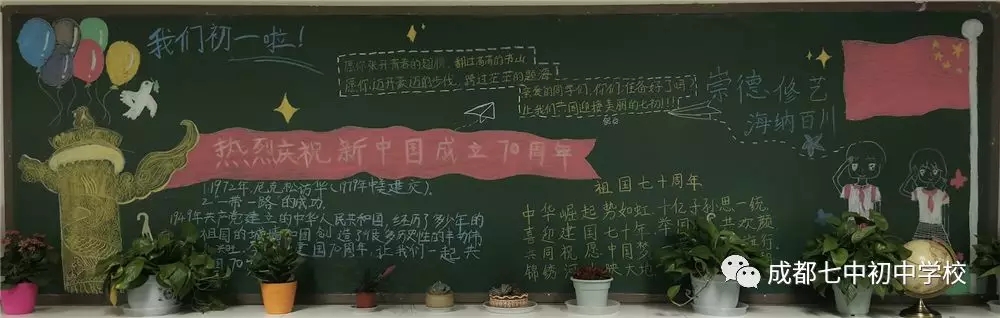 我们初一啦!
愿你张开青春的翅膀,翻过高高的书山
愿你迈开豪迈的步伐,跨过茫茫的题海
亲爱的同学们,你们准备好了吗
让我们一同迎接美丽的七初!!!
崇德·修艺
海纳百川
热烈庆祝新中国成立70周年
1.1972年,尼克松访华(1979年中美建交).
2.“一带一路”的成功.
1949年共产党建立的中华人民共和国,经历了多少年的
祖国的
祖国 创造了很多历史性的
国70周年,让我们一起共
祖国七十周年
中华崛起势如虹,十亿子孙思一统
喜迎建国七十年,举国 共欢颜
共同祝愿中国梦
锦绣河 映大地
成都七中初中学校